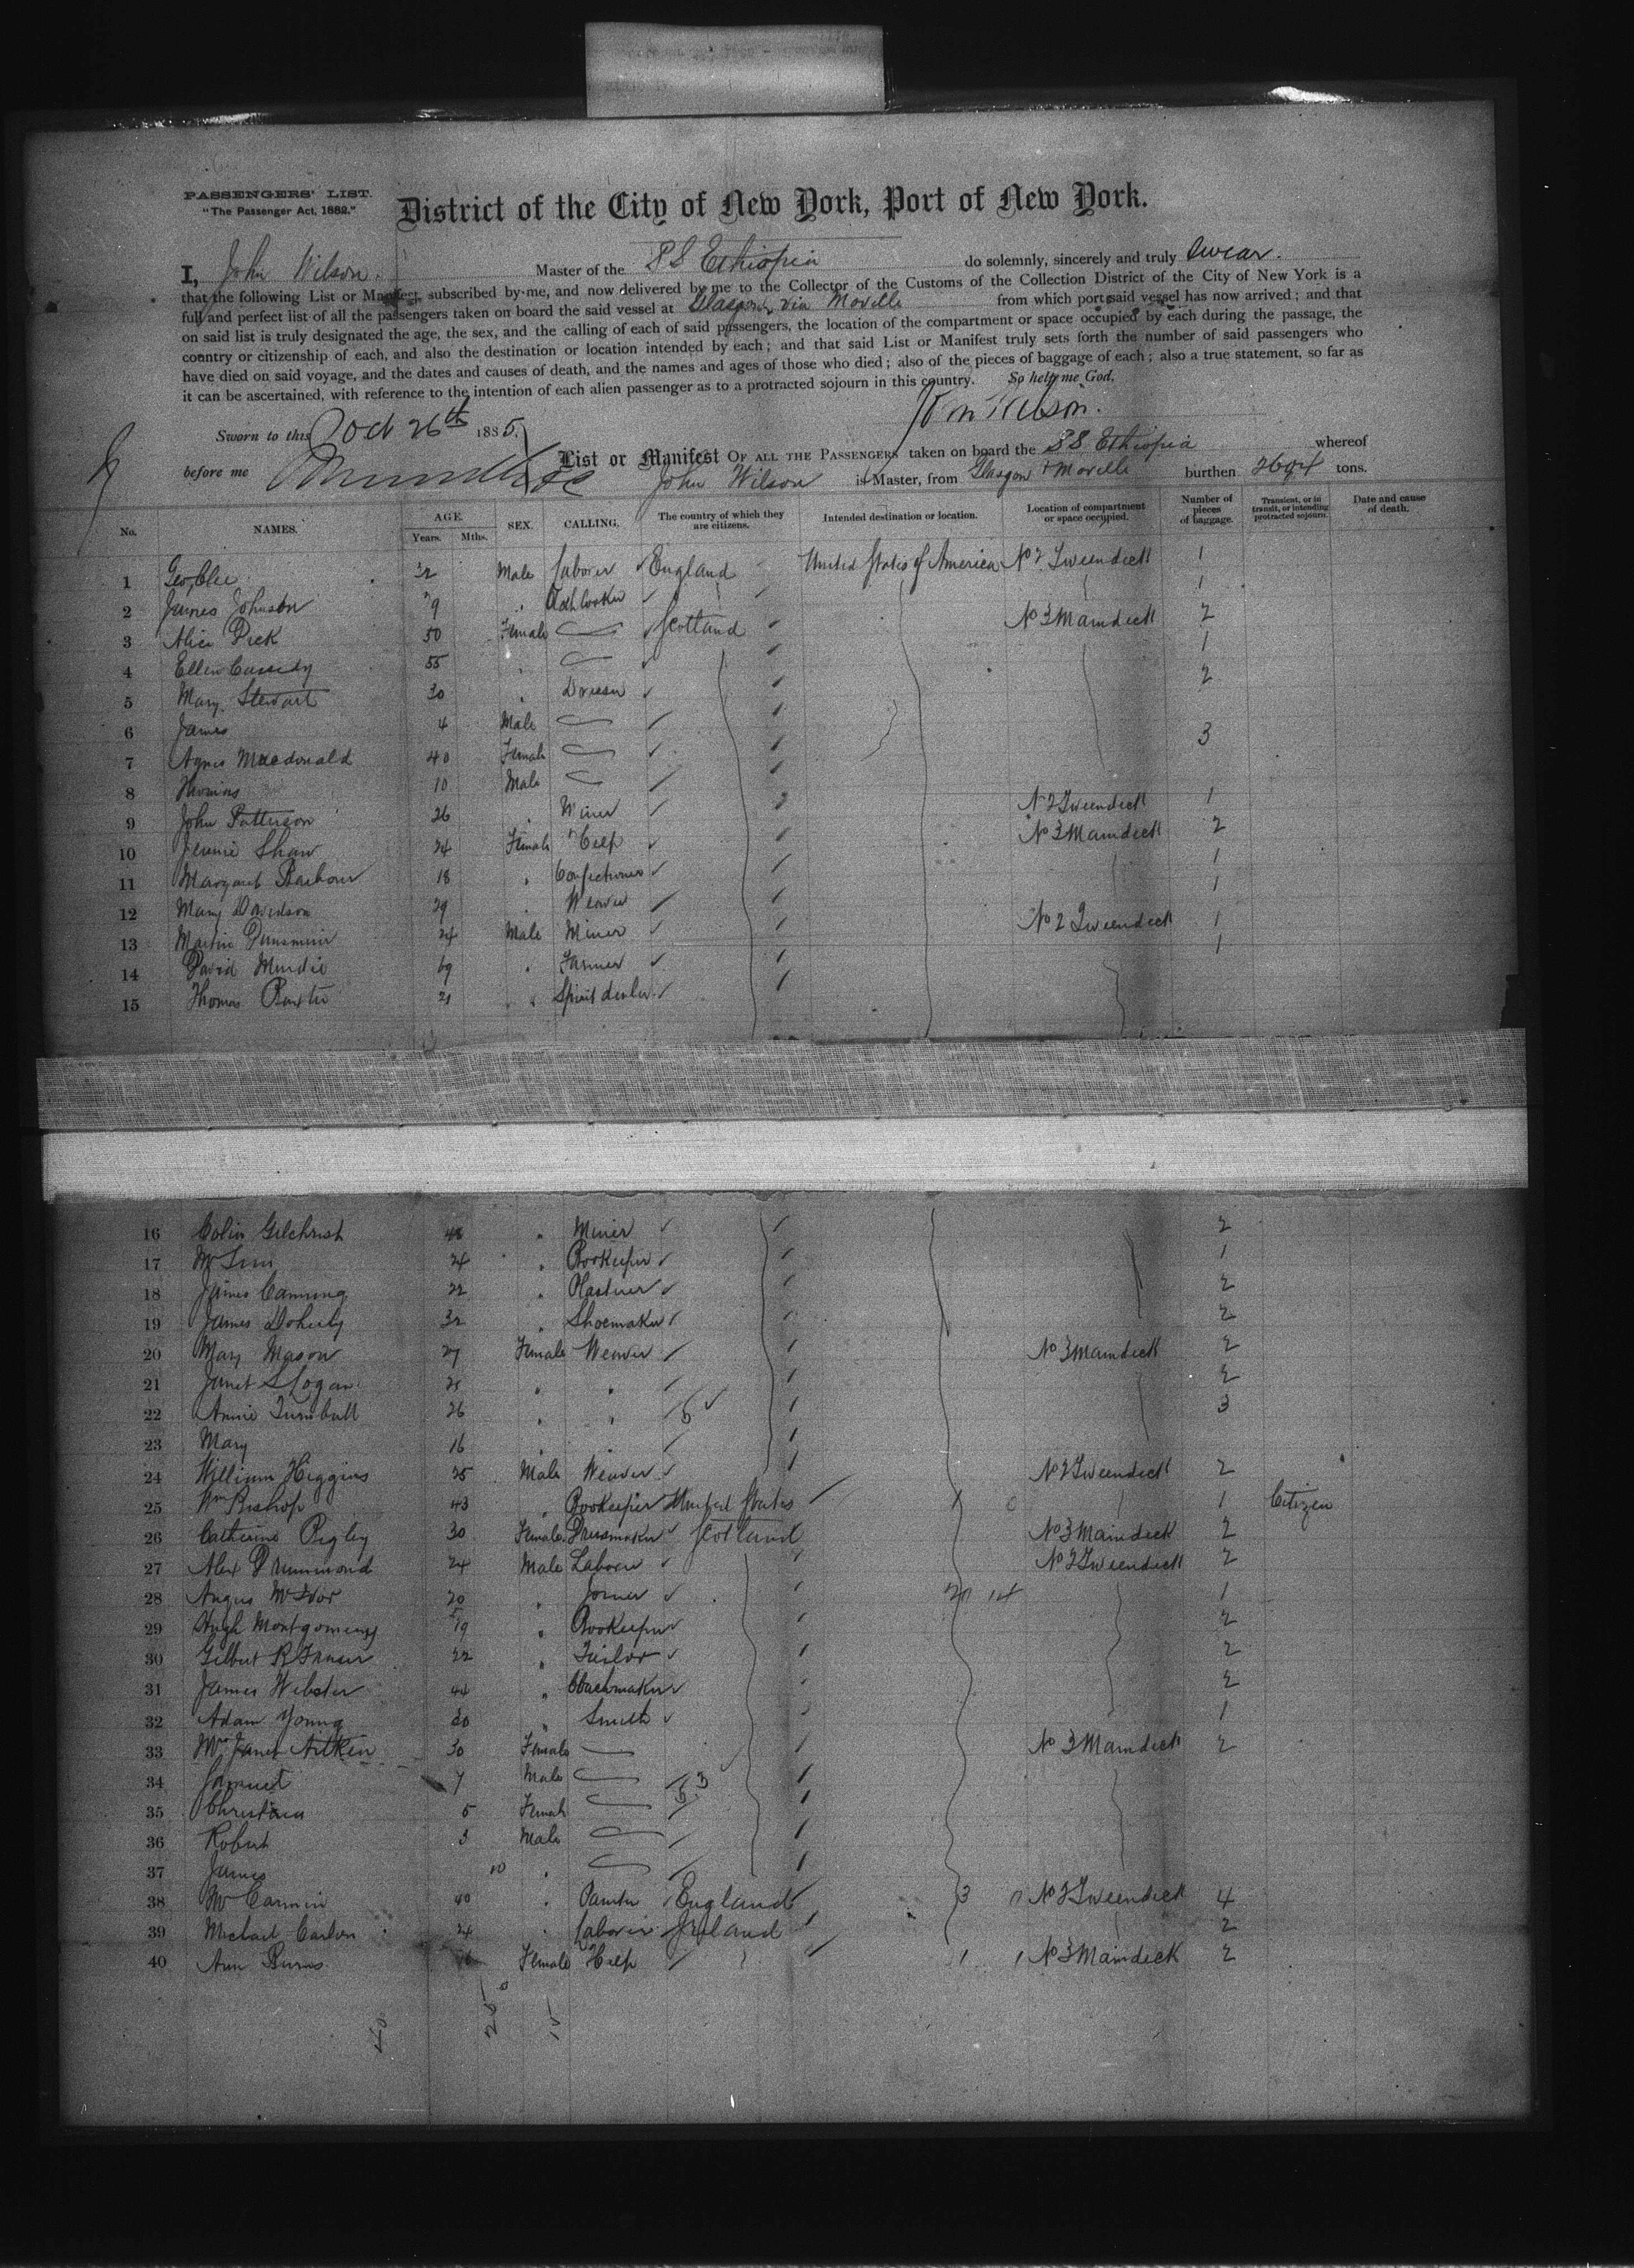 PASSENGERS' LIST.
"The Passenger Act, 1882."
District of the City of New York, Port of New York.
I, John Wilson. Master of the S S Ethiopia do solemnly, sincerely and truly swear.
that the following List or Manifest, subscribed by me, and now delivered by me to the Collector of the Customs of the Collection District of the City of New York is a
full and perfect list of all the passengers taken on board the said vessel at Glasgow via Moville from which port said vessel has now arrived; and that
on said list is truly designated the age, the sex, and the calling of each of said passengers, the location of the compartment or space occupied by each during the passage, the
country or citizenship of each, and also the destination or location intended by each; and that said List or Manifest truly sets forth the number of said passengers who
have died on said voyage, and the dates and causes of death, and the names and ages of those who died; also of the pieces of baggage of each; also a true statement, so far as
it can be ascertained, with reference to the intention of each alien passenger as to a protracted sojourn in this country. So help me God.
Sworn to this Oct 26th 1885.
before me
List or Manifest OF ALL THE PASSENGERS taken on board the S S Ethiopia whereof
John Wilson is Master, from Glasgow & Moville burthen 2604 tons.
No. NAMES. AGE. Years. Mths. SEX. CALLING. The country of which they are citizens. Intended destination or location. Location of compartment or space occupied. Number of pieces of baggage. Transient, or in transit, or intending protracted sojourn. Date and cause of death.
1 Geo 32 Male Laborer England United States of America No 2 Tweendeck 1
2 James Johnston 1
3 Alice Dick 50 Female Scotland No 3 Maindeck 2
4 Ellen Cassidy 55 1
5 Mary Stewart 30 2
6 James 4 Male
7 Agnes Macdonald 40 Female 3
8 Thomas 10 Male
9 John Patterson 26 Miner No 2 Tweendeck 1
10 Jennie Shaw 24 Female Help No 3 Maindeck 2
11 Margaret Barbour 18 Confectioner 1
12 Mary Davidson 29 Weaver 1
13 Martin Dunsmuir 24 Male Miner No 2 Tweendeck 1
14 David Mundie 69 Farmer 1
15 Thomas Baxter 21 " Spirit dealer
16 Colin Gilchrist 48 " Miner 2
17 24 " Bookeeper 1
18 James Canning 22 " Plasterer 2
19 James Doherty 32 " Shoemaker 2
20 Mary Mason 27 Female Weaver No 3 Maindeck 2
21 Janet Logan " " 2
22 Annie Turnbull 26 " " 3
23 Mary 16 " "
24 William Higgins 25 Male Weaver No 2 Tweendeck 2
25 Wm Bishop 43 " Bookeeper United States 1 Citizen
26 Catherine Pigley 30 Female Dressmaker Scotland No 3 Maindeck 2
27 Alex Drummond 24 Male Laborer No 2 Tweendeck 2
28 Angus McIvor 20 " Joiner 1
29 Hugh Montgomery 19 " Bookeeper 2
30 Gilbert R Fraser 22 " Tailor 2
31 James Webster 44 " Coachmaker 2
32 Adam Young " Smith 1
33 Mrs Janet Aitken 30 Female No 3 Maindeck 2
34 Samuel 7 Male
35 Christina 5 Female
36 Robert 3 Male
37 James 10 "
38 40 " Painter England No 2 Tweendeck 4
39 Michael 24 " Laborer Ireland 2
40 Ann Burns Female Help No 3 Maindeck 2
40 25 15